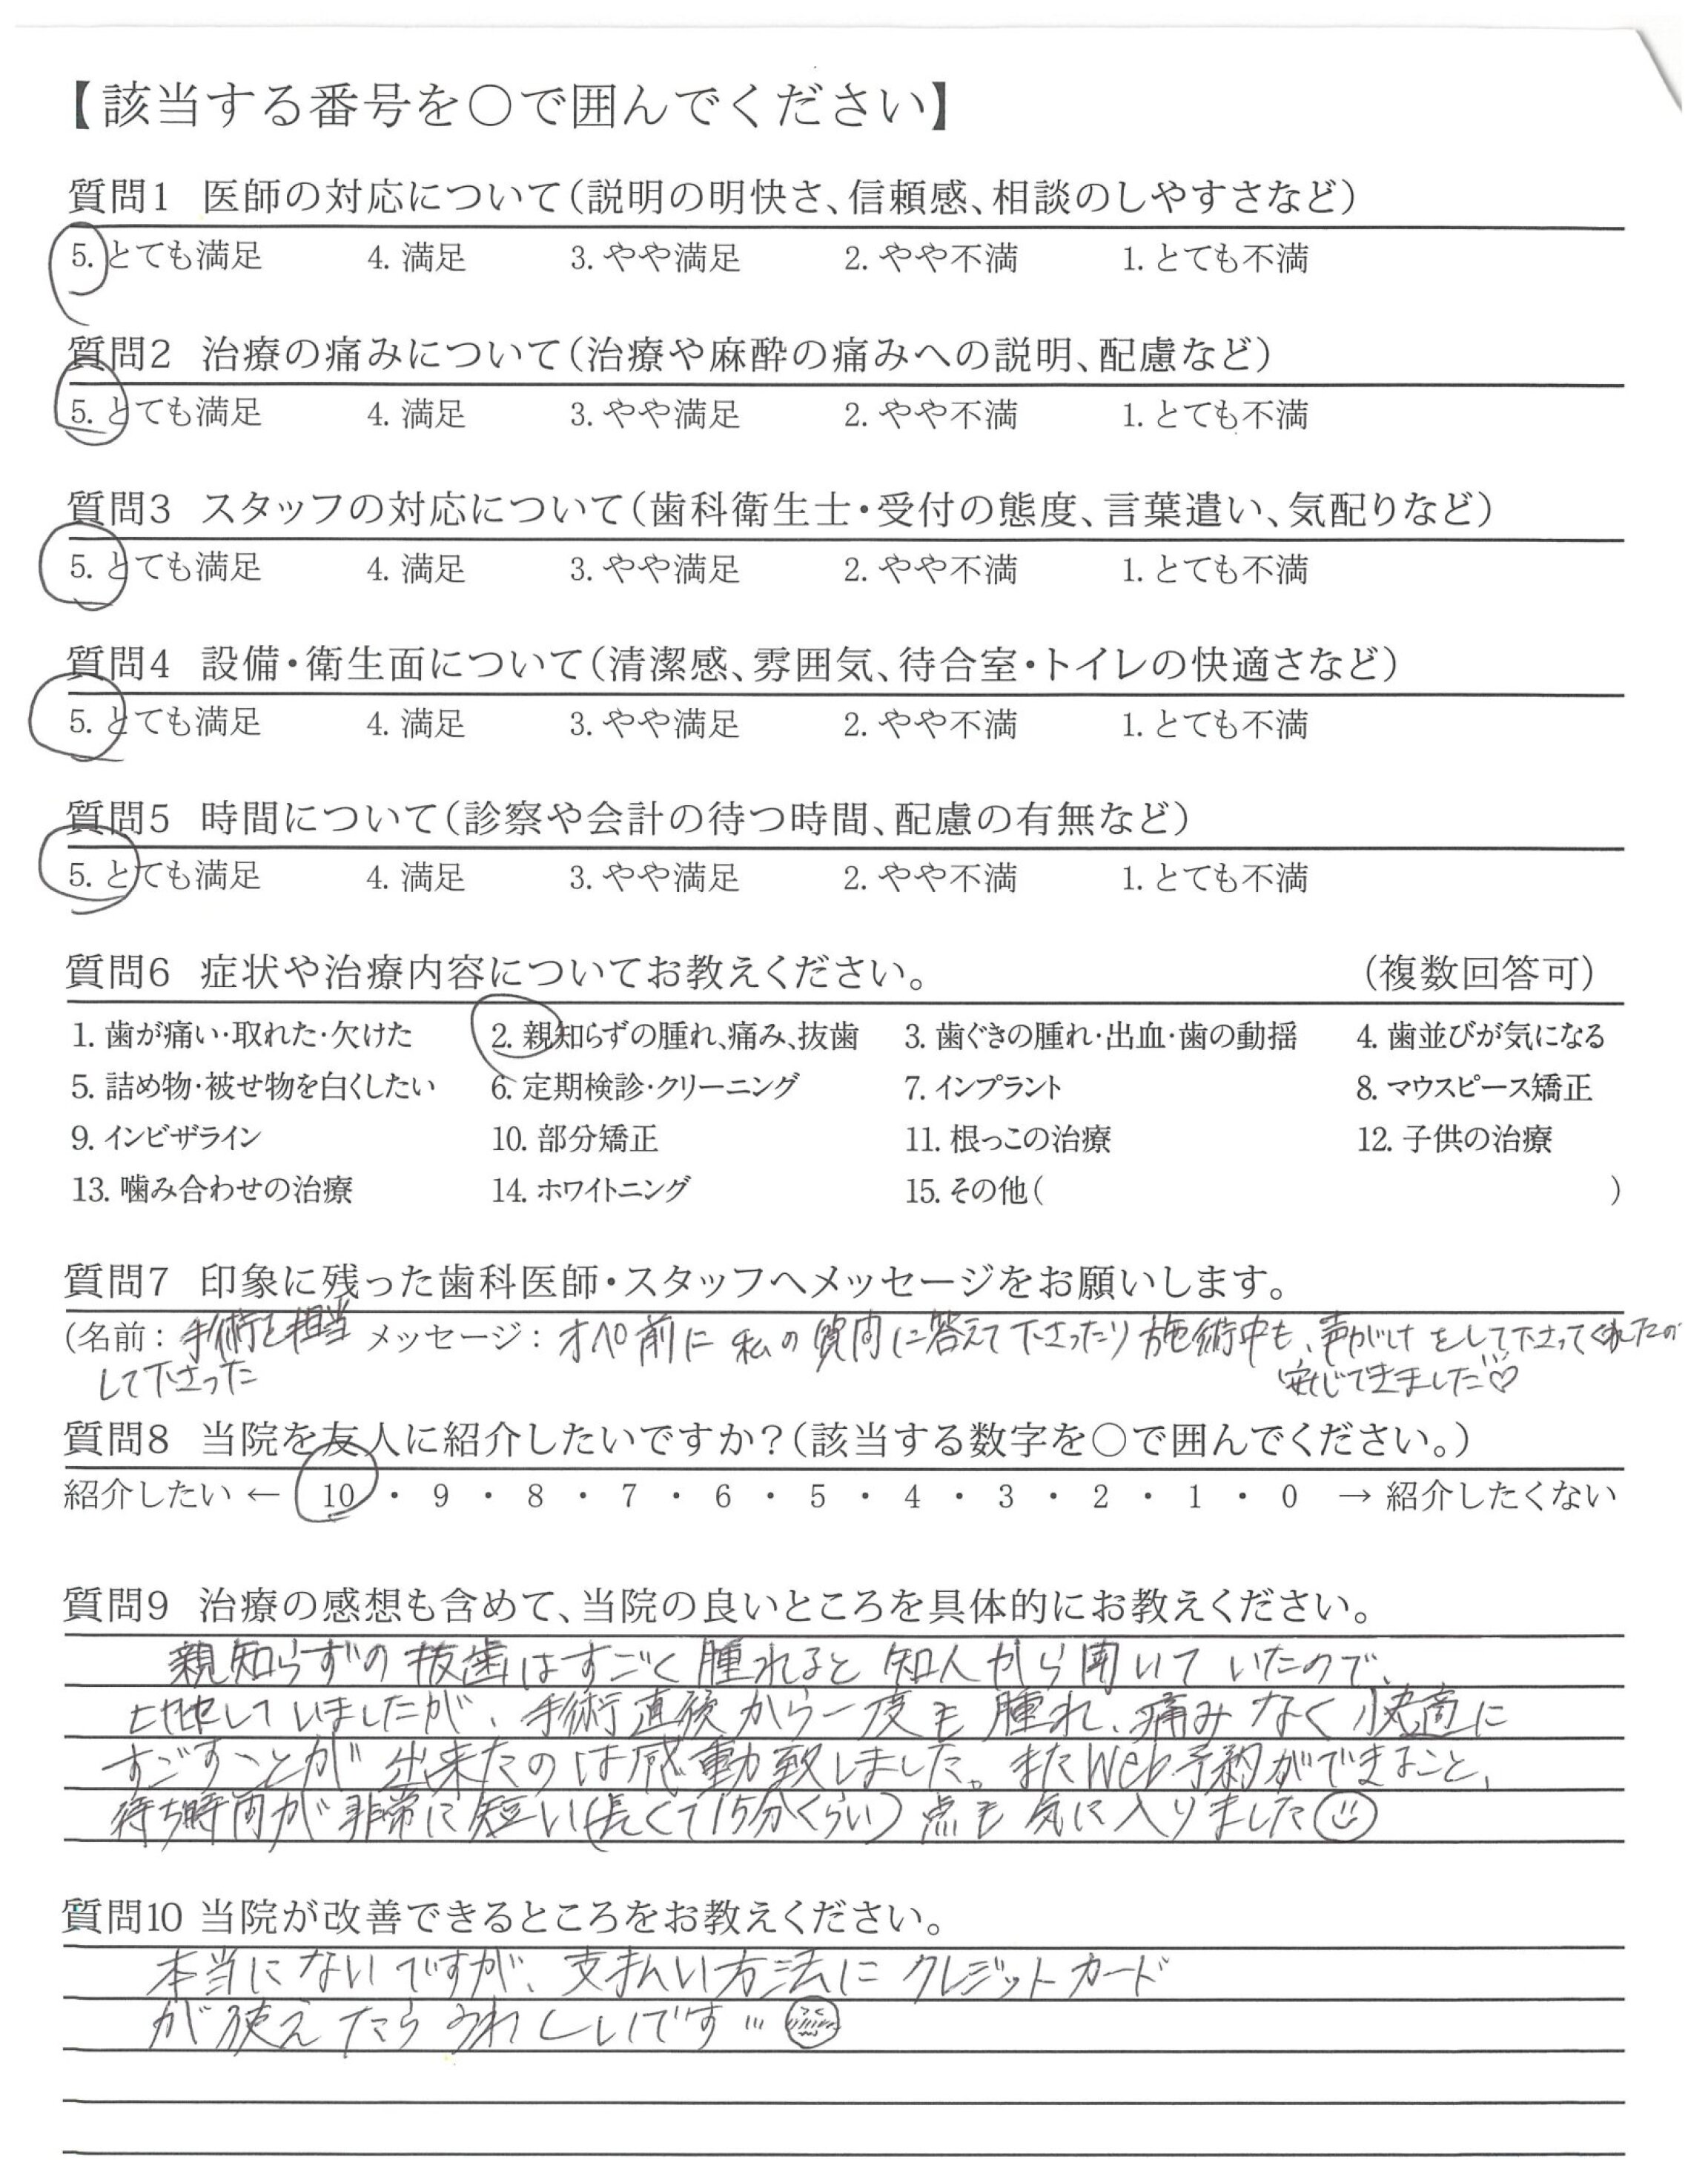 【該当する番号を○で囲んでください】
質問1 医師の対応について(説明の明快さ、信頼感、相談のしやすさなど)
5. とても満足 4. 満足 3. やや満足 2. やや不満 1. とても不満
質問2 治療の痛みについて(治療や麻酔の痛みへの説明、配慮など)
5. とても満足 4. 満足 3. やや満足 2. やや不満 1. とても不満
質問3 スタッフの対応について(歯科衛生士・受付の態度、言葉遣い、気配りなど)
5. とても満足 4. 満足 3. やや満足 2. やや不満 1. とても不満
質問4 設備・衛生面について(清潔感、雰囲気、待合室・トイレの快適さなど)
5. とても満足 4. 満足 3. やや満足 2. やや不満 1. とても不満
質問5 時間について(診察や会計の待つ時間、配慮の有無など)
5. とても満足 4. 満足 3. やや満足 2. やや不満 1. とても不満
質問6 症状や治療内容についてお教えください。 (複数回答可)
1. 歯が痛い・取れた・欠けた 2. 親知らずの腫れ、痛み、抜歯 3. 歯ぐきの腫れ・出血・歯の動揺 4. 歯並びが気になる
5. 詰め物・被せ物を白くしたい 6. 定期検診・クリーニング 7. インプラント 8. マウスピース矯正
9. インビザライン 10. 部分矯正 11. 根っこの治療 12. 子供の治療
13. 噛み合わせの治療 14. ホワイトニング 15. その他( )
質問7 印象に残った歯科医師・スタッフへメッセージをお願いします。
(名前: 手術を担当 メッセージ: オペ前に私の質問に答えて下さったり施術中も、声がけをして下さってくれたので
して下さった 安心できました♡
質問8 当院を友人に紹介したいですか?(該当する数字を○で囲んでください。)
紹介したい ← 10 ・ 9 ・ 8 ・ 7 ・ 6 ・ 5 ・ 4 ・ 3 ・ 2 ・ 1 ・ 0 → 紹介したくない
質問9 治療の感想も含めて、当院の良いところを具体的にお教えください。
親知らずの抜歯はすごく腫れると知人から聞いていたので、
していましたが、手術直後から一度も腫れ、痛みなく快適に
すごすことが出来たのは感動致しました。またWeb予約ができること、
待ち時間が非常に短い(長くて15分くらい)点も気に入りました
質問10 当院が改善できるところをお教えください。
本当にないですが、支払い方法にクレジットカード
が使えたらうれしいです…